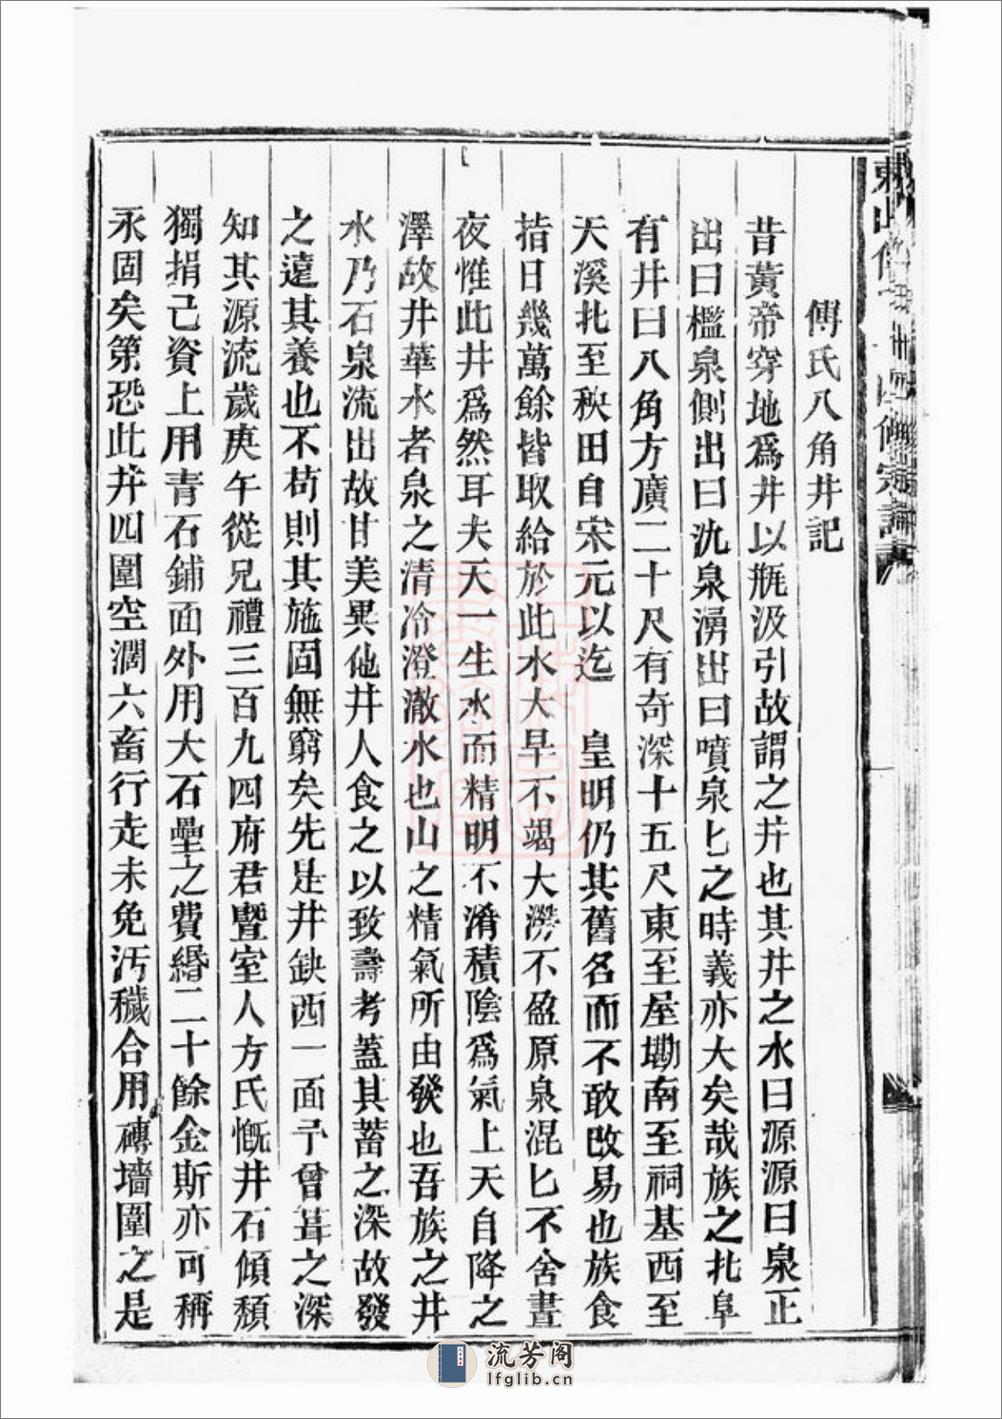 傅氏八角井記
昔黃帝穿地爲井以瓶汲引故謂之井也其井之水曰源源曰泉正
出曰檻泉側出曰氿泉湧出曰噴泉匕之時義亦大矣哉族之北阜
有井曰八角方廣二十尺有奇深十五尺東至屋磡南至祠基西至
天溪北至秧田自宋元以迄 皇明仍其舊名而不敢改易也族食
指日幾萬餘皆取給於此水大旱不竭大澇不盈原泉混匕不舍晝
夜惟此井爲然耳夫天一生水而精明不淆積陰爲氣上天自降之
澤故井華水者泉之清冷澄澈水也山之精氣所由發也吾族之井
水乃石泉流出故甘美異他井人食之以致壽考蓋其蓄之深故發
之遠其養也不苟則其施固無窮矣先是井缺西一面予曾葺之深
知其源流歲庚午從兄禮三百九四府君暨室人方氏慨井石傾頹
獨捐己資上用青石鋪面外用大石壘之費緡二十餘金斯亦可稱
永固矣第恐此井四圍空濶六畜行走未免汚穢合用磚墻圍之是
流芳阁
lfglib.cn